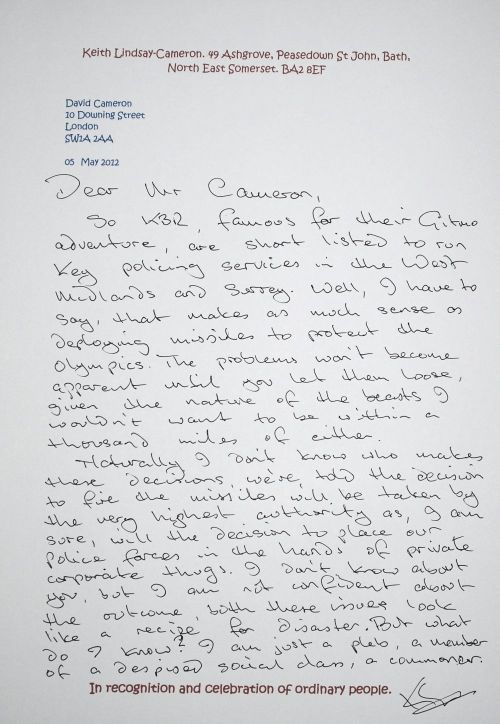 Keith Lindsay-Cameron. 49 Ashgrove, Peasedown St John, Bath,
North East Somerset. BA2 8EF
David Cameron
10 Downing Street
London
SW1A 2AA
05 May 2012
Dear Mr Cameron,
So KBR, famous for their Gitmo
adventure, are short listed to run
key policing services in the West
Midlands and Surrey. Well, I have to
say, that makes as much sense as
deploying missiles to protect the
Olympics. The problems won't become
apparent until you let them loose,
given the nature of the beasts I
wouldn't want to be within a
thousand miles of either.
Naturally I don't know who makes
these decisions, we're told the decision
to fire the missiles will be taken by
the very highest authority as, I am
sure, will the decision to place our
police forces in the hands of private
corporate thugs. I don't know about
you, but I am not confident about
the outcome, both these issues look
like a recipe for disaster. But what
do I know? I am just a pleb, a member
of a despised social class, a commoner.
In recognition and celebration of ordinary people.